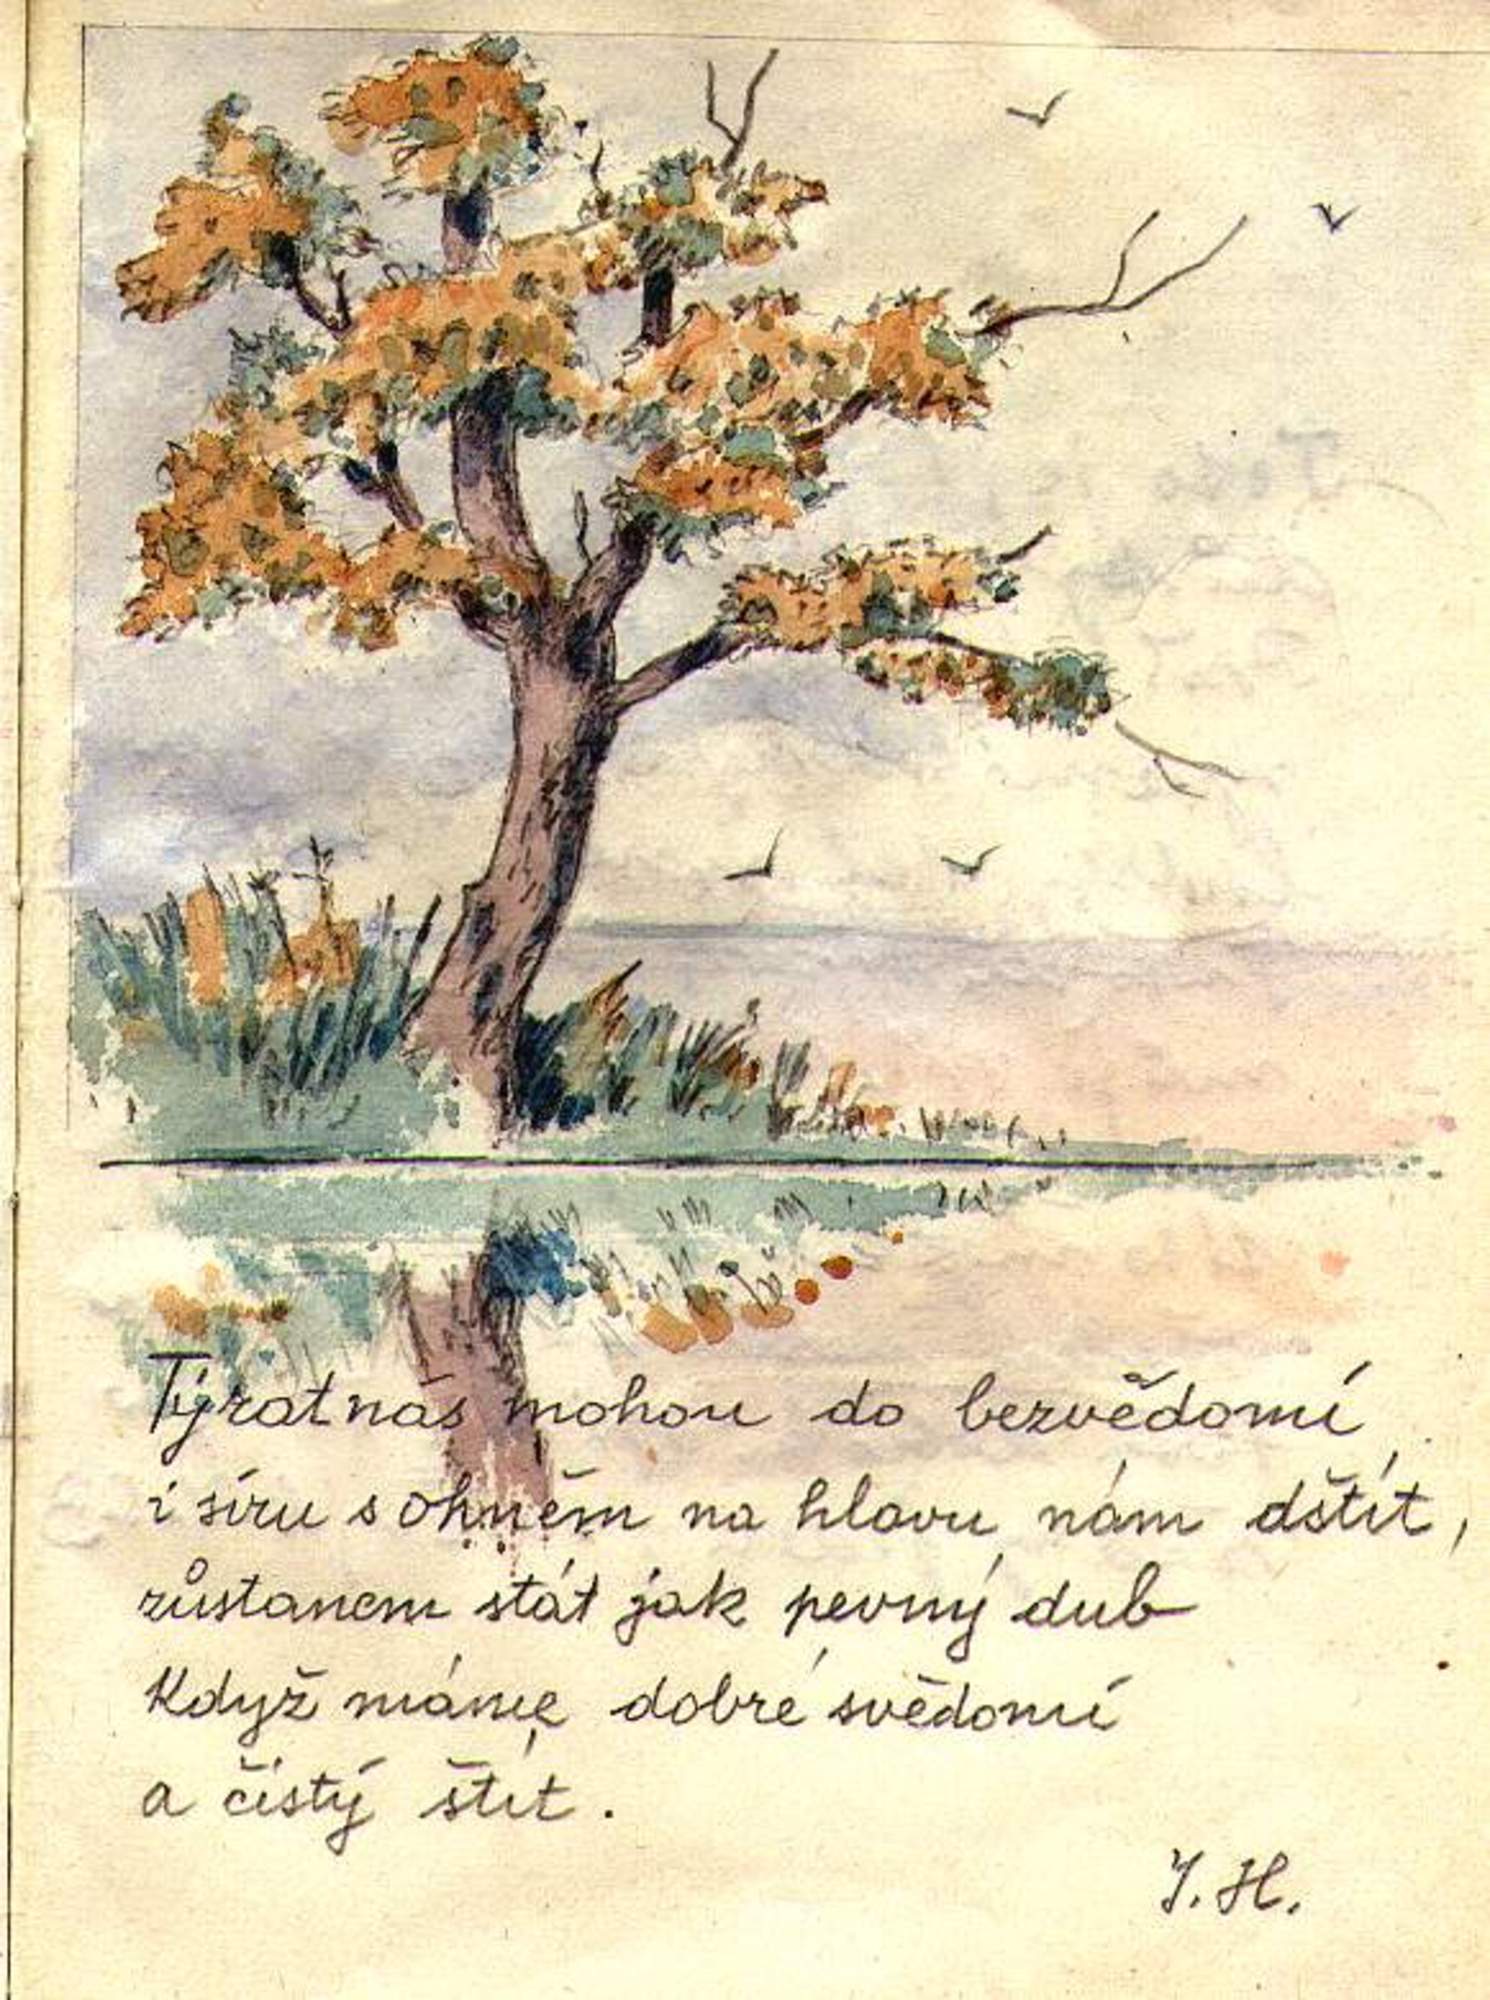 Týrat nás mohou do bezvědomí
i síru s ohněm na hlavu nám dštít,
zůstanem stát jak pevný dub
Když máme dobré svědomí
a čistý štít.
J. H.